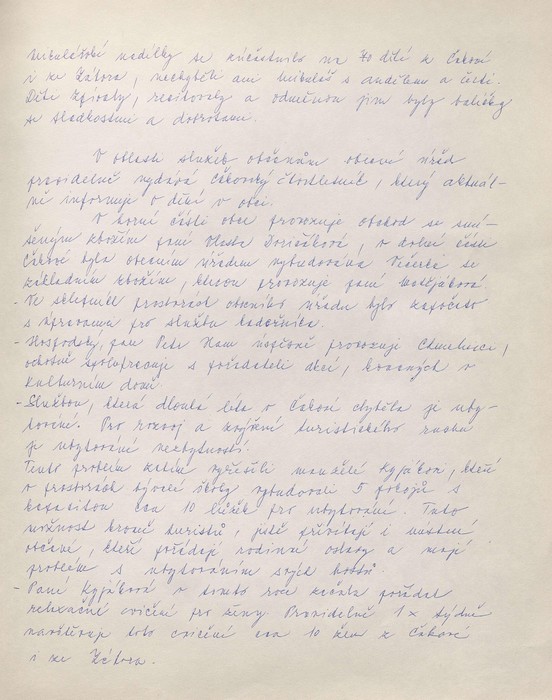 Mikulášské nadílky se zúčastnilo na 70 dětí z Čakové
i ze Zátora, nechyběli ani Mikuláš s andělem a čerti.
Děti zpívaly, recitovaly a odměnou jim byly balíčky
se sladkostmi a dobrotami.
V oblasti služeb občanům obecní úřad
pravidelně vydává Čakovský čtvrtletník, který aktuál-
ně informuje o dění v obci.
V horní části obce provozuje obchod se smí-
šeným zbožím paní Vlasta, v dolní části
Čakové byla obecním úřadem vybudována Večerka se
základním zbožím, kterou provozuje paní
- Ve sklepních prostorách obecního úřadu bylo započato
s úpravami pro službu kadeřnice.
- Hospodský, pan Petr Ham úspěšně provozuje,
ochotně spolupracuje s pořadateli akcí, konaných v
Kulturním domě.
- Službou, která dlouhá léta v Čakové chyběla je uby-
tování. Pro rozvoj a zvýšení turistického ruchu
je ubytování nezbytností.
Tento problém zatím vyřešili manželé Kyjákovi, kteří
v prostorách bývalé školy vybudovali 5 pokojů s
kapacitou cca 10 lůžek pro ubytování. Tuto
možnost kromě turistů, jistě přivítají i místní
občané, kteří pořádají rodinné oslavy a mají
problém s ubytováním svých hostů.
- Paní Kyjáková v tomto roce začala pořádat
relaxačné cvičení pro ženy. Pravidelně 1x týdně
navštěvuje toto cvičení cca 10 žen z Čakové
i ze Zátora.